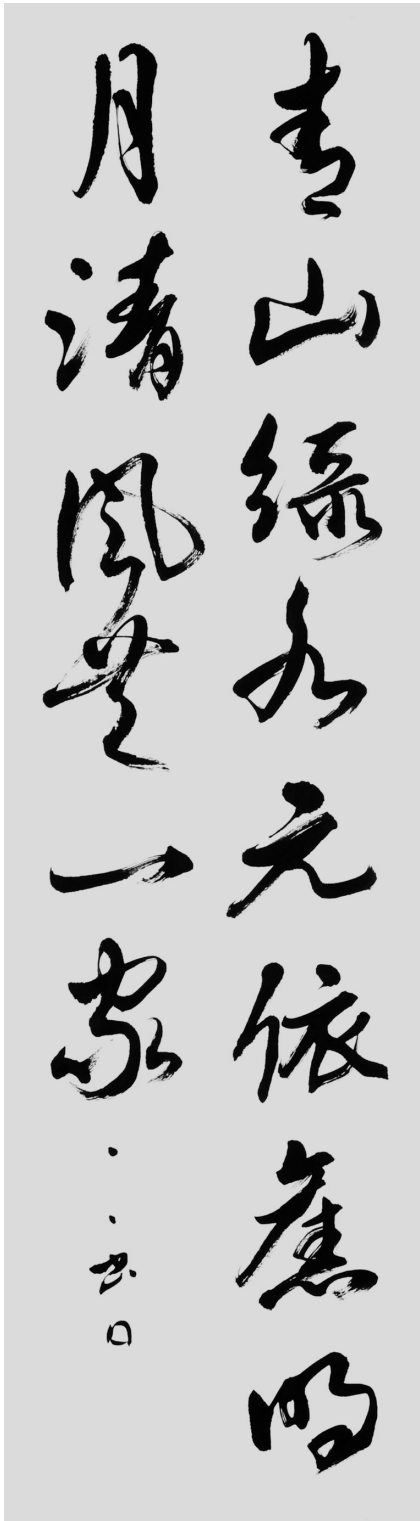 青山緑水元依舊明
月清風共一家